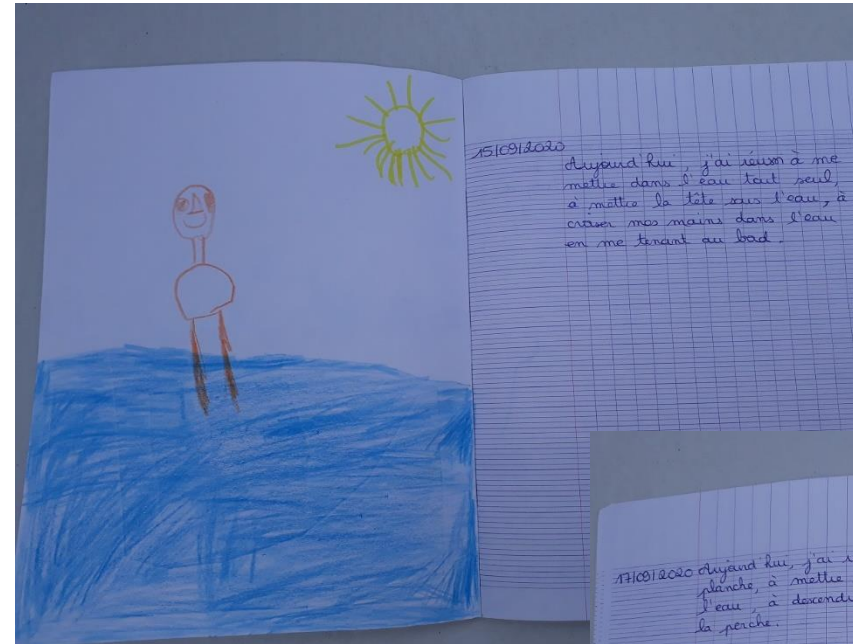 15/09/2020
Aujourd'hui, j'ai réussi à me
mettre dans l'eau tout seul,
à mettre la tête sous l'eau, à
croiser mes mains dans l'eau
en me tenant au bord.
17/09/2020 Aujourd'hui, j'ai
planche, à mettre
l'eau, à descendre
la perche.